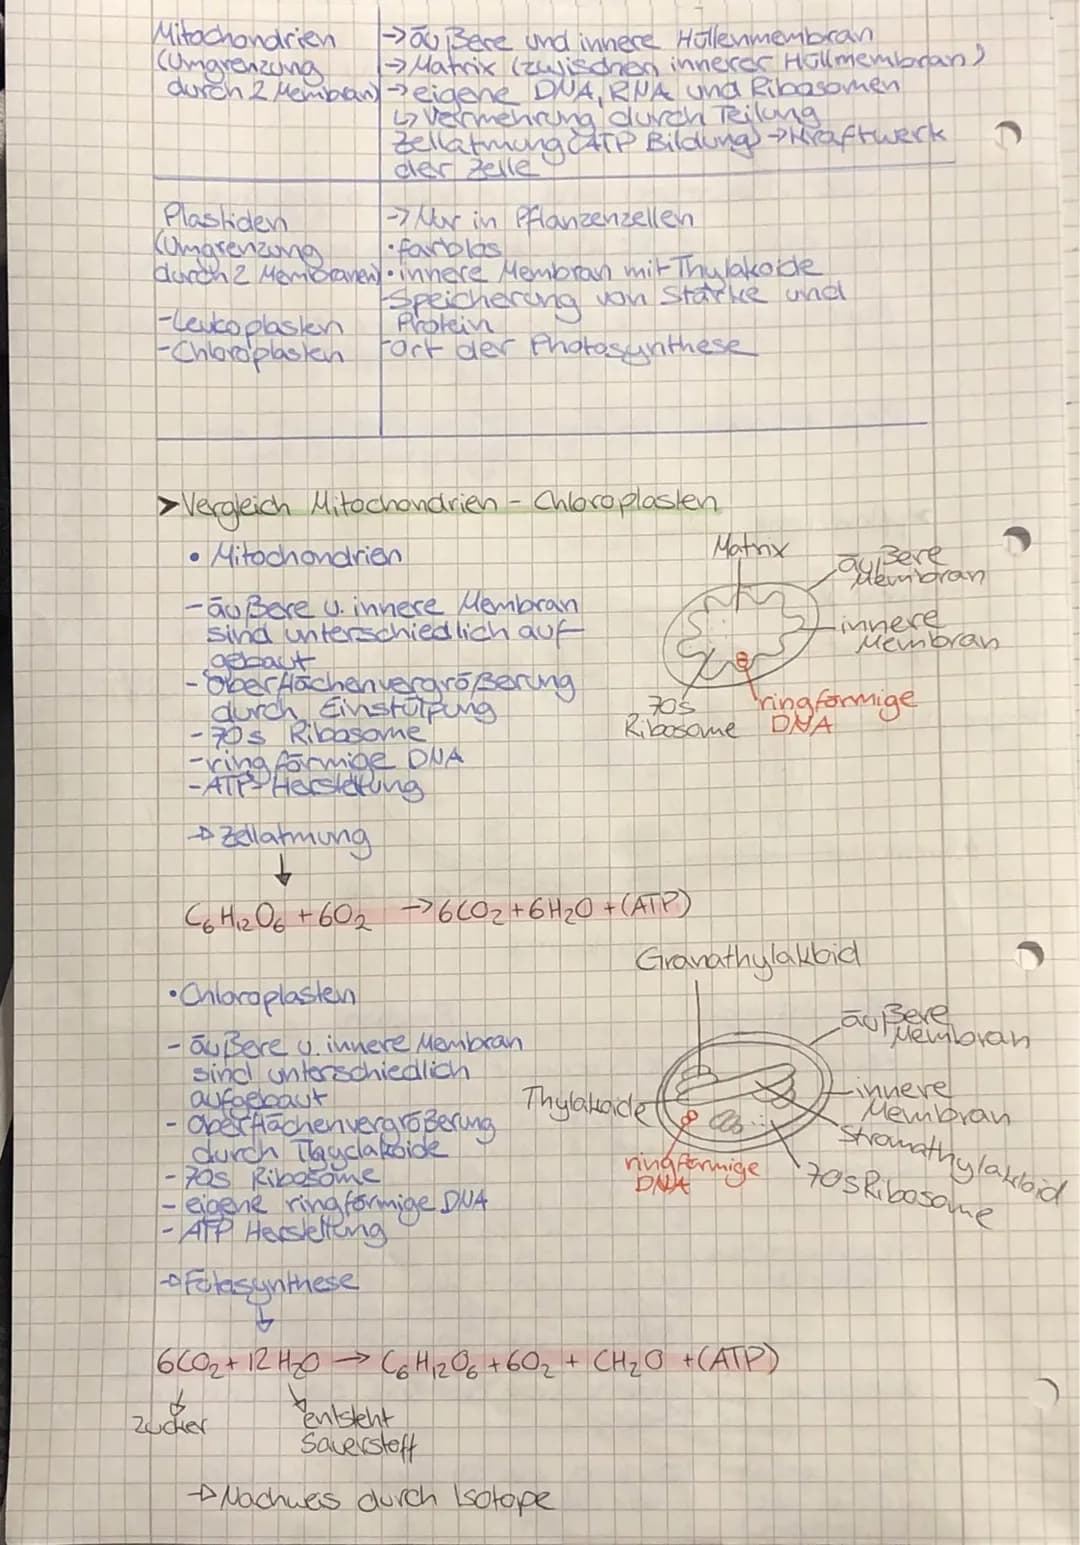 Mitochondrien
(Umgrenzung
durch 2 Membran)
→ äußere und innere Hüllenmembran
→ Matrix (zwischen innerer Hüllmembran)
→ eigene DNA, RNA und Ribosomen
↳ Vermehrung durch Teilung
Zellatmung (ATP Bildung) → Kraftwerk
der Zelle
Plastiden
(Umgrenzung
durch 2 Membranen)
-Leukoplasten
-Chloroplasten
→ Nur in Pflanzenzellen
• farblos
• innere Membran mit Thylakoide
-Speicherung von Stärke und
Protein
-Ort der Photosynthese
> Vergleich Mitochondrien - Chloroplasten
• Mitochondrien
- äußere u. innere Membran
sind unterschiedlich auf-
gebaut
- Oberflächenvergrößerung
durch Einstülpung
- 70s Ribosome
- ringförmige DNA
- ATP-Herstellung
→ Zellatmung
↓
Matrix
äußere
Membran
innere
Membran
70s
Ribosome
ringförmige
DNA
C6H12O6 + 6O2 → 6CO2 + 6H2O + (ATP)
• Chloroplasten
- äußere u. innere Membran
sind unterschiedlich
aufgebaut
- Oberflächenvergrößerung
durch Thyclakoide
- 70s Ribosome
- eigene ringförmige DNA
- ATP Herstellung
→ Fotosynthese
↓
Granathylakoid
äußere
Membran
Thylakoide
innere
Membran
Stromathylakoid
ringförmige
DNA
70s Ribosome
6CO2 + 12 H2O → C6H12O6 + 6O2 + CH2O + (ATP)
Zucker
entsteht
Sauerstoff
→ Nachweis durch Isotope